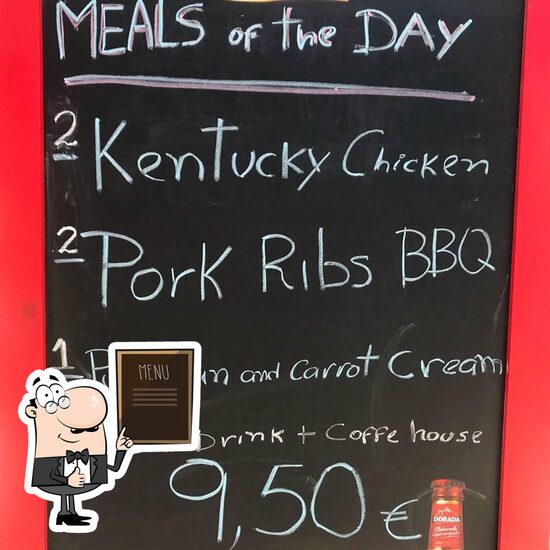 MEALS of the DAY
2 Kentucky Chicken
2 Pork Ribs BBQ
1 and Carrot Cream
MENU
Drink + Coffe house
9,50 €
DORADA